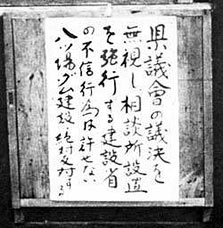 県議會の議決を
無視し相談所設置
を強行する建設省
の不信行為は許せない
八ッ場ダム建設絶対反対